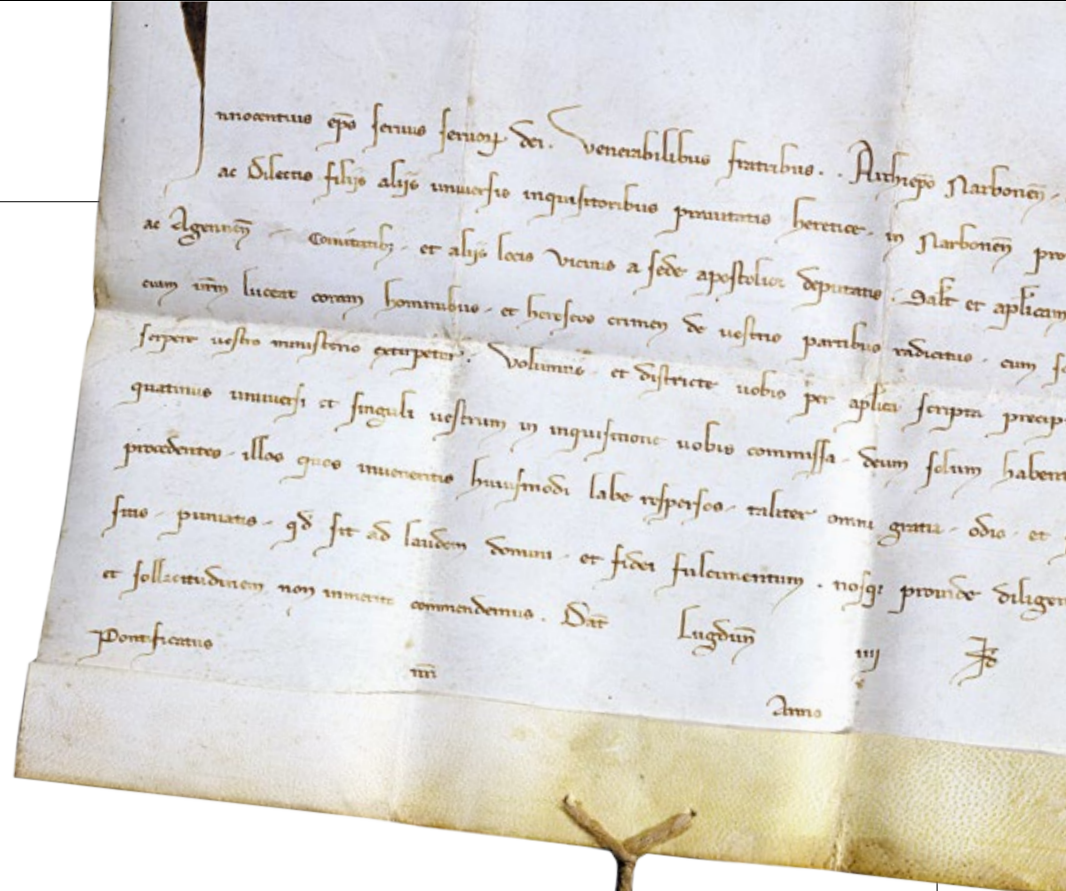 nnocentius ep̄s seruus seruoꝝ dei. Venerabilibus fratribus. . Archiep̄o Narbonen̄.
ac Dilectis filijs alijs uniuersis inquisitoribus prauitatis heretice. in Narbonen̄ pro
ac Agennen̄ Comitatib; et alijs locis vicinis a sede apostolica deputatis. Salt̄ et ap̄licam
luceat coram hominibus. et hereseos crimen de uestris partibus radicitus. cum
serpere uestro ministerio extirpetur. Volumus. et districte uobis per ap̄lica scripta precip
quatinus uniuersi et singuli uestrum in inquisitione uobis commissa. deum solum habent
procedentes. illos quos inueneritis huiusmodi labe respersos. taliter omni gratia. odio. et
suis puniatis. qd̄ sit ad laudem domini. et fidei fulcimentum. nosq; prouide diligen
et sollicitudinem non inmerito commendemus. Dat̄ Lugdun̄ iiij
Pontificatus nr̄i Anno